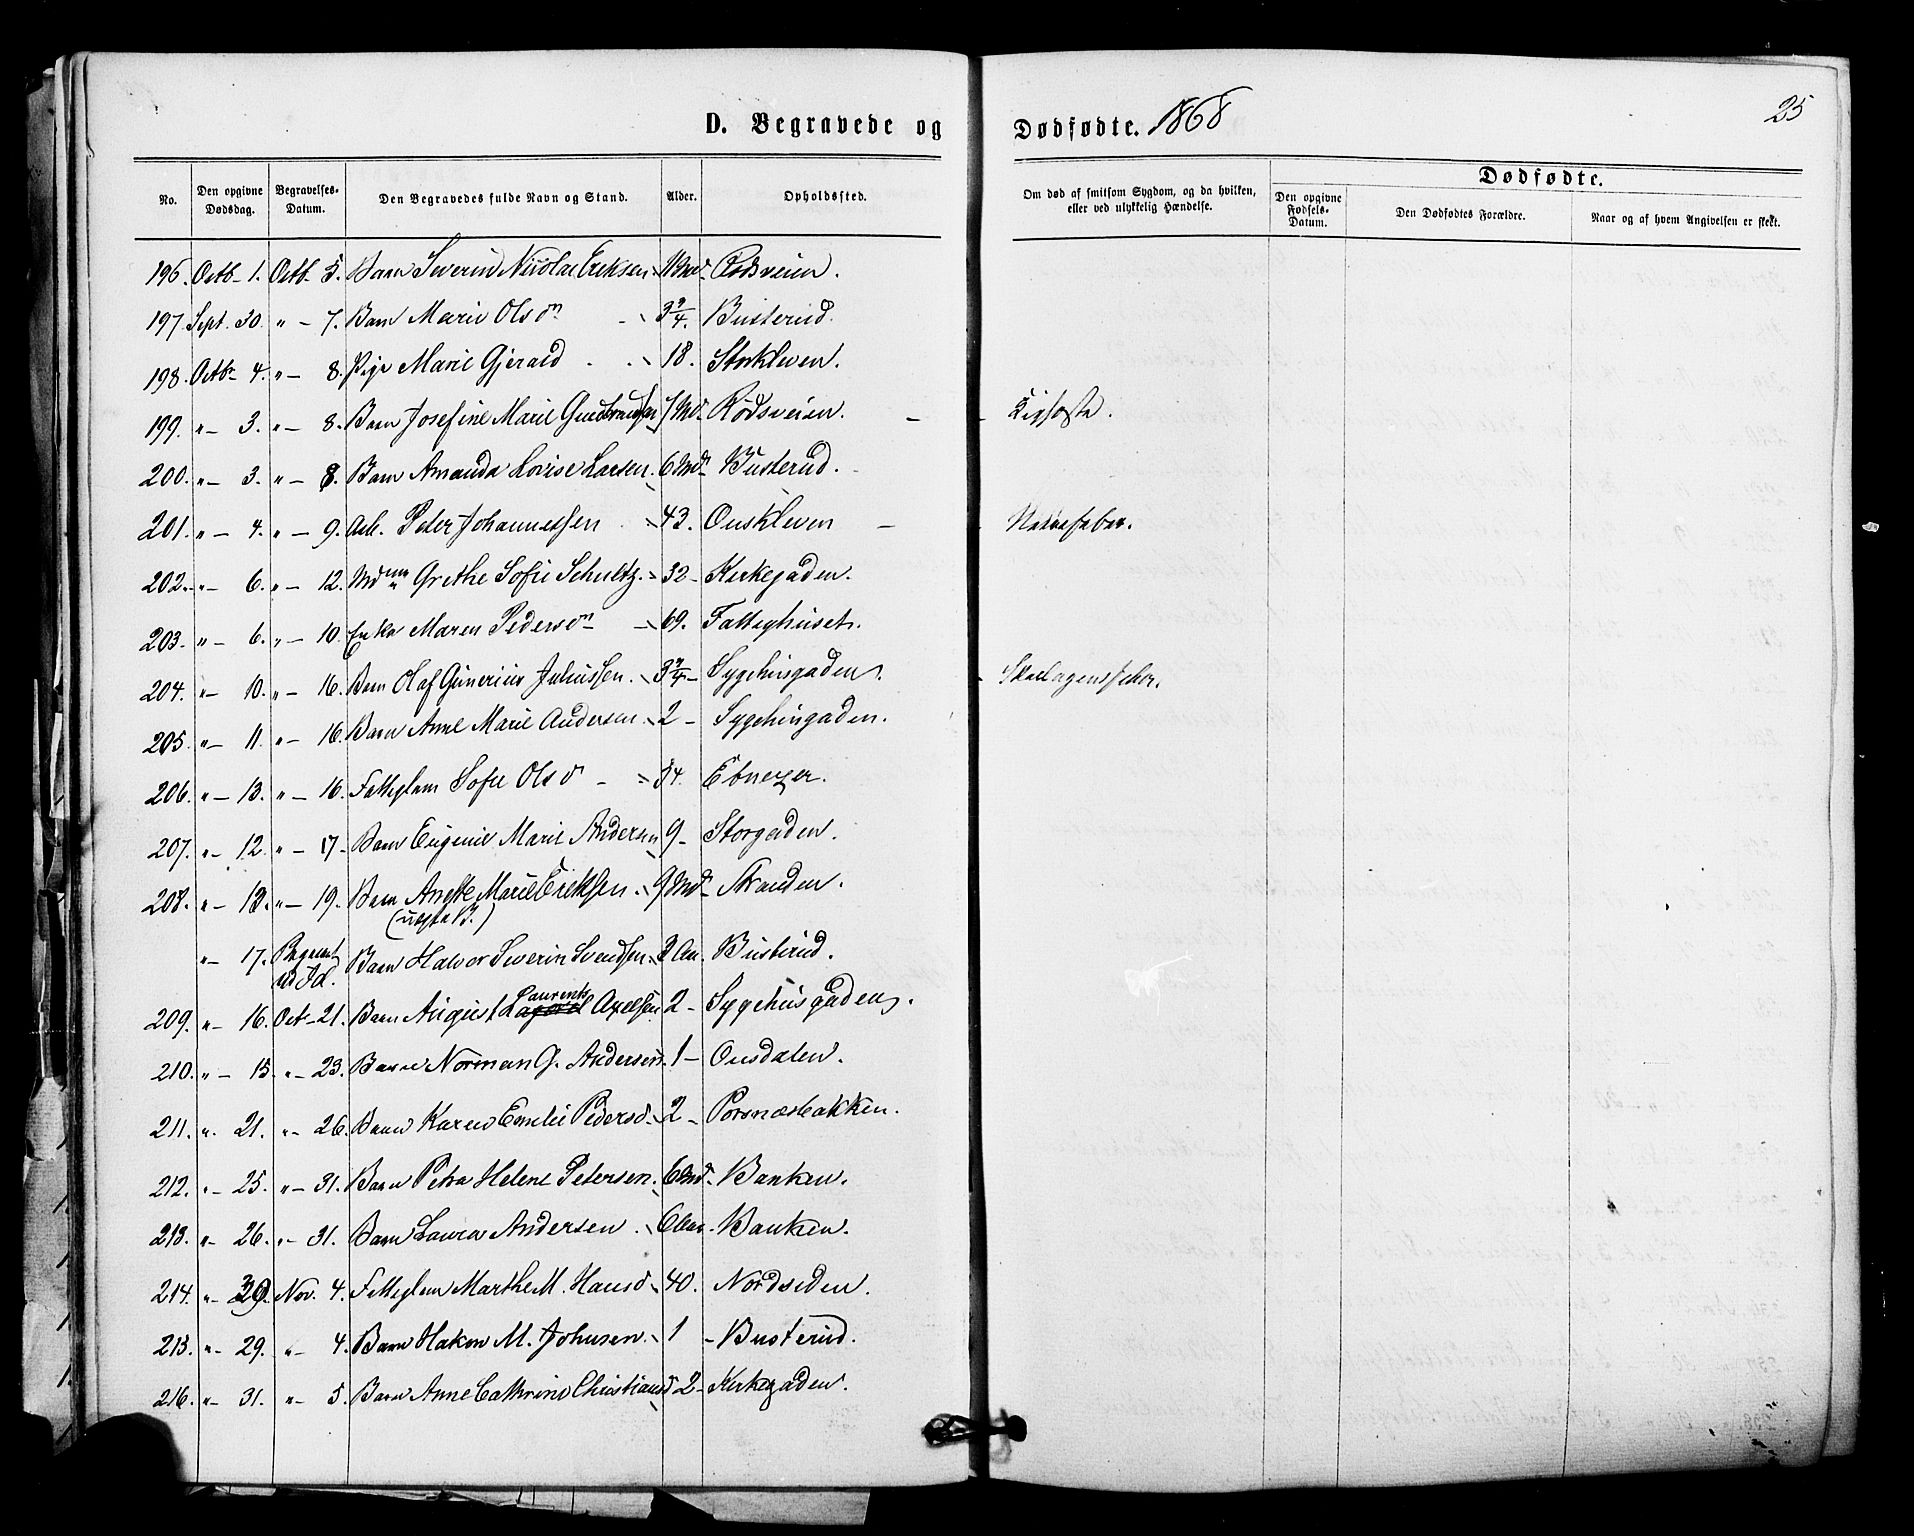 D. Begravede og Dødfødte. 1868
25
No.
Den opgivne Dødsdag.
Begravelses-Datum.
Den Begravedes fulde Navn og Stand.
Alder.
Opholdssted.
Om død af smitsom Sygdom, og da hvilken, eller ved ulykkelig Hændelse.
Dødfødte.
Den opgivne Fødsels-Datum.
Den Dødfødtes Forældre.
Naar og af hvem Angivelsen er skekt.
196. Octb. 1. Octb. 5. Barn Severin Nicolai Eriksen 11 Md. Rødsveien.
197. Sept. 30. " 7. Barn Marie Olsdn 3 3/4. Busterud.
198. Octb. 4. " 8. Pige Marie Gjerald 18. Storkleven.
199. " 3. " 8. Barn Josefine Marie Gundbrandsen 7 Md. Rødsveien.
200. " 3. " 8. Barn Amanda Lovise Larsen. 6 Md. Busterud.
201. " 4. " 9. Arb. Peter Johannessen 43. Ouskleven Nervefeber.
202. " 6. " 12. Mdm Grethe Sofie Schultz. 32 Kirkegaden.
203. " 6. " 10. Enke Maren Pedersdn 69. Fattighuset.
204. " 10. " 16. Barn Olaf Gunerius Juliussen. 3 3/4 Sygehusgaden. Skarlagensfeber.
205. " 11. " 16. Barn Anne Marie Andersen 2 Sygehusgaden.
206. " 13. " 16. Fattiglem Sofie Olsd 34. Ebnezer.
207. " 12. " 17. Barn Eugenie Marie Andersen 9 Storgaden.
208. " 12. " 19. Barn Anette Marie Eriksen. 9 Md. Stranden.
(uægte B.)
" 17. Begravet ad Id. Barn Halvor Severin Svendsen 3 Aar. Busterud.
209. " 16. Oct. 21. Barn August Laurents Axelsen 2 Sygehusgaden.
210. " 15. " 23. Barn Norman G. Andersen. 1 Ousdalen.
211. " 21. " 26. Barn Karen Emilie Pedersd. 2 Porsnæsbakken.
212. " 25. " 31. Barn Petra Helene Petersen. 6 Md. Banken.
213. " 26. " 31. Barn Laura Andersen 6 Aar. Banken.
214. " 30. Nov. 4. Fattiglem Marthe M. Hansd. 40. Nordsiden.
215. " 29. " 4. Barn Hakon M. Johnsen. 1 Busterud.
216. " 31. " 5. Barn Anne Cathrine Christiansd 2 Kirkegaden.